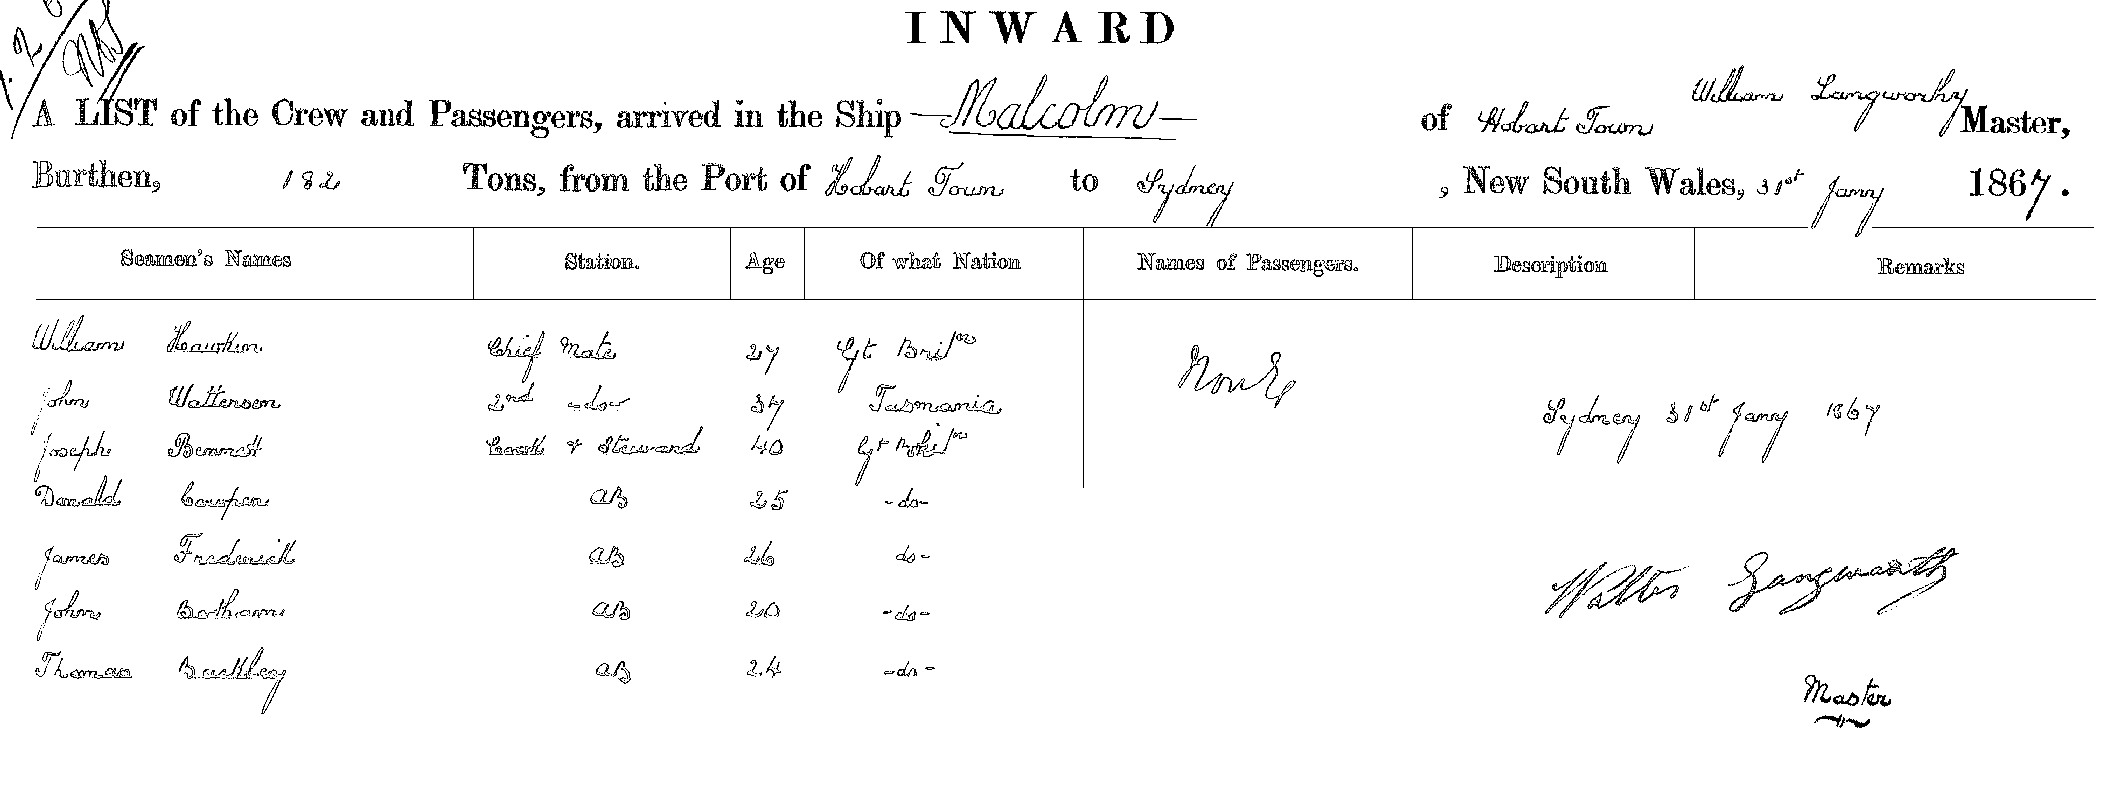 INWARD
A LIST of the Crew and Passengers, arrived in the Ship Malcolm of Hobart Town William Langworthy Master,
Burthen, 182 Tons, from the Port of Hobart Town to Sydney, New South Wales, 31st Jany 1867.
Seamen's Names Station. Age Of what Nation Names of Passengers. Description Remarks
William Chief Mate 27 Gt
John Watterson 2nd -do- 37 Tasmania
Joseph Bennett Cook & Steward 40 Gt
Sydney 31st Jany 1867
Donald AB 25 -do-
James Frederick AB 26 do-
John Botham AB 20 -do-
Thomas Buckley AB 24 -do-
Master